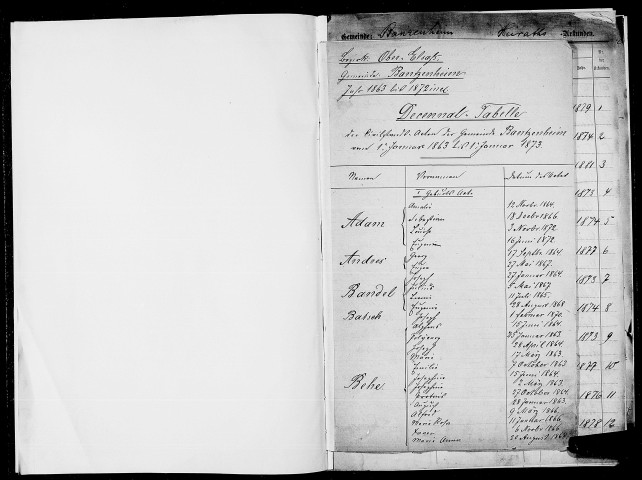 Gemeinde: Banzenheim Heiraths-Urkunden.
Bezirk Ober-Elsaß
Gemeinde Banzenheim
Jahr 1863 bis 1872 incl.
Decennal-Tabelle
der Civilstands-Acten der Gemeinde Banzenheim
vom 1. Januar 1863 bis 1. Januar 1873.
Namen Vornamen Datum des Actes
I Geburts Acte
Amalie 12 Novbr. 1864.
Adam Sebastian 18 Decbr. 1866.
Louise 3 Novbr. 1872.
Eugenie 16 Juni 1872.
Andres Georg 17 Septbr. 1864.
27 Mai 1867.
Joseph 27 Januar 1864.
Bandel 5 Mai 1867
11 Juli 1865.
Eugenie 28 August 1868
Batsch Joseph 1 Februar 1870.
Alphons 15 Juni 1864.
25 Januar 1863.
Joseph 28 April 1864.
Marie 17 März 1863.
Emilie 7 October 1863
Behe Josephine 15 Juni 1864.
Josephine 12 März 1863.
27 October 1864.
August 28 Januar 1863.
Alfred 9 März 1866.
Marie Rosa 11 Januar 1866.
Xaver 6 Novbr. 1866
Marie Anna 20 August 1864
1879 1
1884 2
1881 3
1873 4
1874 5
1877 6
1873 7
1874 8
1873 9
1877 10
1876 11
1878 12